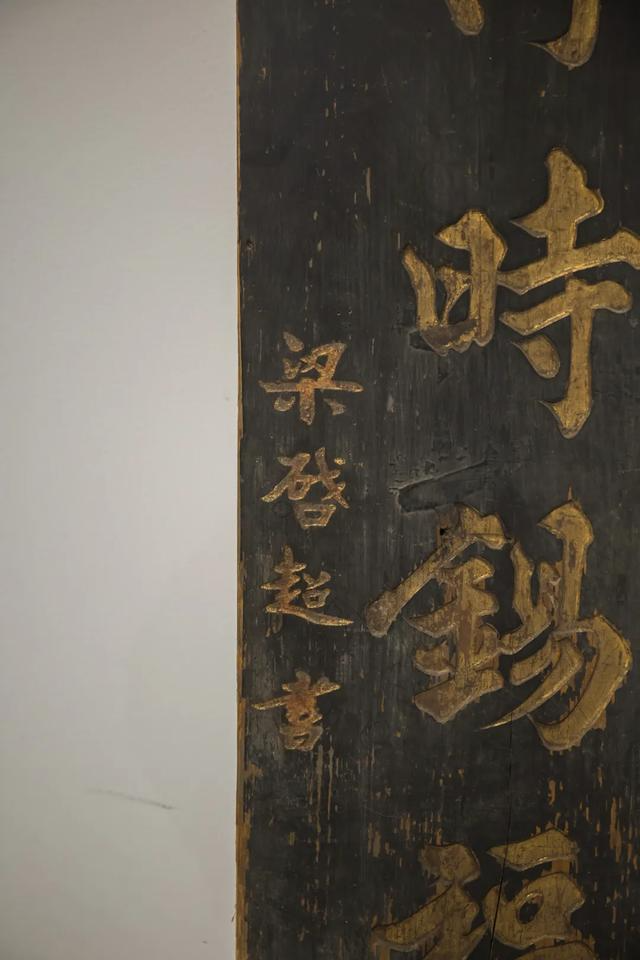 時錫
梁啓超書